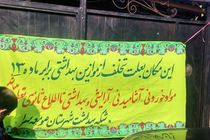 این مکان بعلت تخلف از موازین بهداشتی برابر ماده ۱۳
مواد خوردنی، آشامیدنی، آرایشی و بهداشتی تا اطلاع ثانوی تعطیل
شبکه بهداشت شهرستان